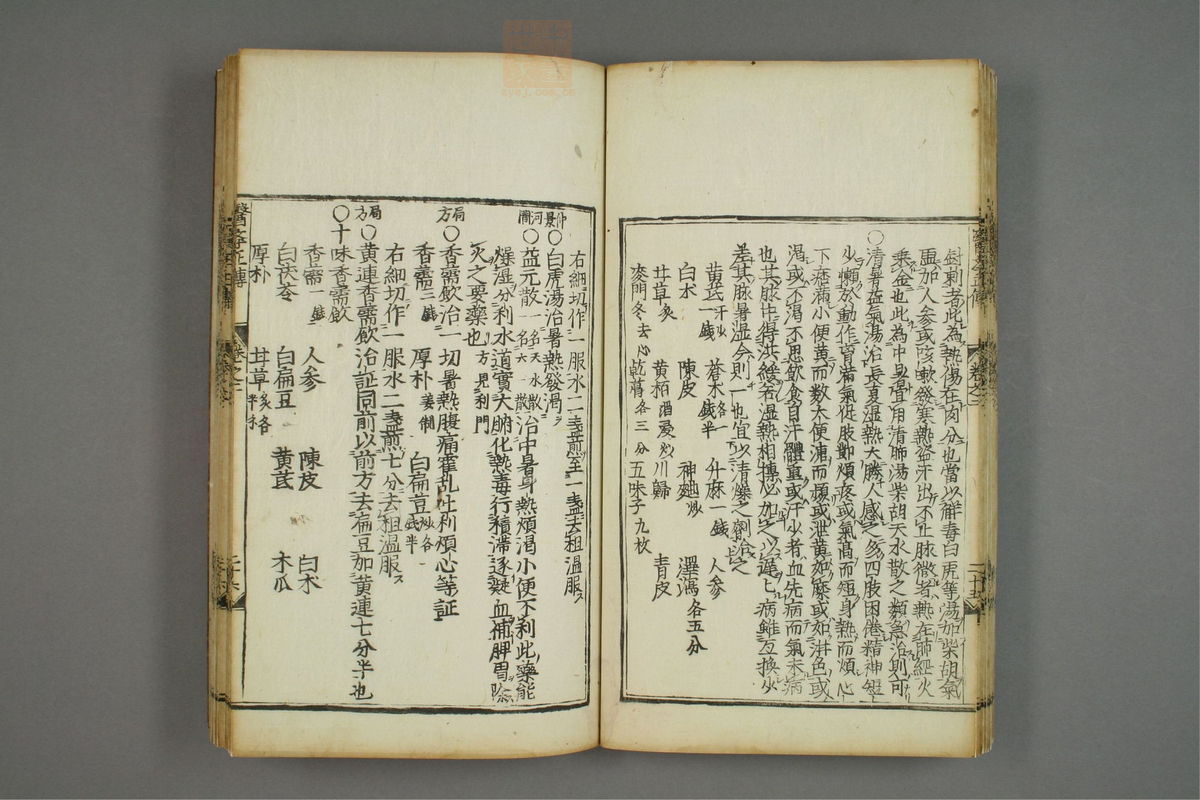 封刺者此為熱傷在肉分也當以解毒白虎等湯加柴胡氣
虛加人參或咳嗽發寒熱盜汗出不止脉微者熱在肺經火
乘金也此為中暑宜用清肺湯柴胡天水散之類急治則可
〇清暑益氣湯治長夏濕熱大勝人感之多四肢困倦精神短
少懶於動作胷滿氣促肢節煩疼或氣高而短身熱而煩心
下痞滿小便黃而數大便溏而頻或泄黃如糜或如泔色或
渴或不渴不思飲食自汗體重或汗少者血先病而氣未病
也其脉中得洪緩若濕熱相搏必加之以遲々病雖互換少
差其脉暑濕令則一也宜以清燥之劑治之
黃芪汗少一錢 蒼术各一錢半 升麻一錢 人參
白术 陳皮 神麯炒 澤瀉各五分
甘草炙 黃栢酒 川歸 青皮
麥門冬去心 乾葛各三分 五味子九枚
右細切作一服水二盞煎至一盞去粗溫服
仲景〇白虎湯治暑熱發渴
河間〇益元散一名天水散一名六一散治中暑身熱煩渴小便不利此藥能
燥濕分利水道實大腑化熱毒行積滯逐凝血補脾胃除
灾之要藥也方見利門
局方〇香薷飲治一切暑熱腹痛霍乱吐利煩心等証
香薷二錢 厚朴姜制 白扁荳炒各一錢半
右細切作一服水二盞煎七分去粗溫服
局方〇黃連香薷飲治証同前以前方去扁豆加黃連七分半也
〇十味香薷飲
香薷一錢 人參 陳皮 白术
白茯苓 白扁豆 黃芪 木瓜
厚朴 甘草炙各半
醫學正傳 卷之二 二十六
醫學正傳 卷之二 二十五